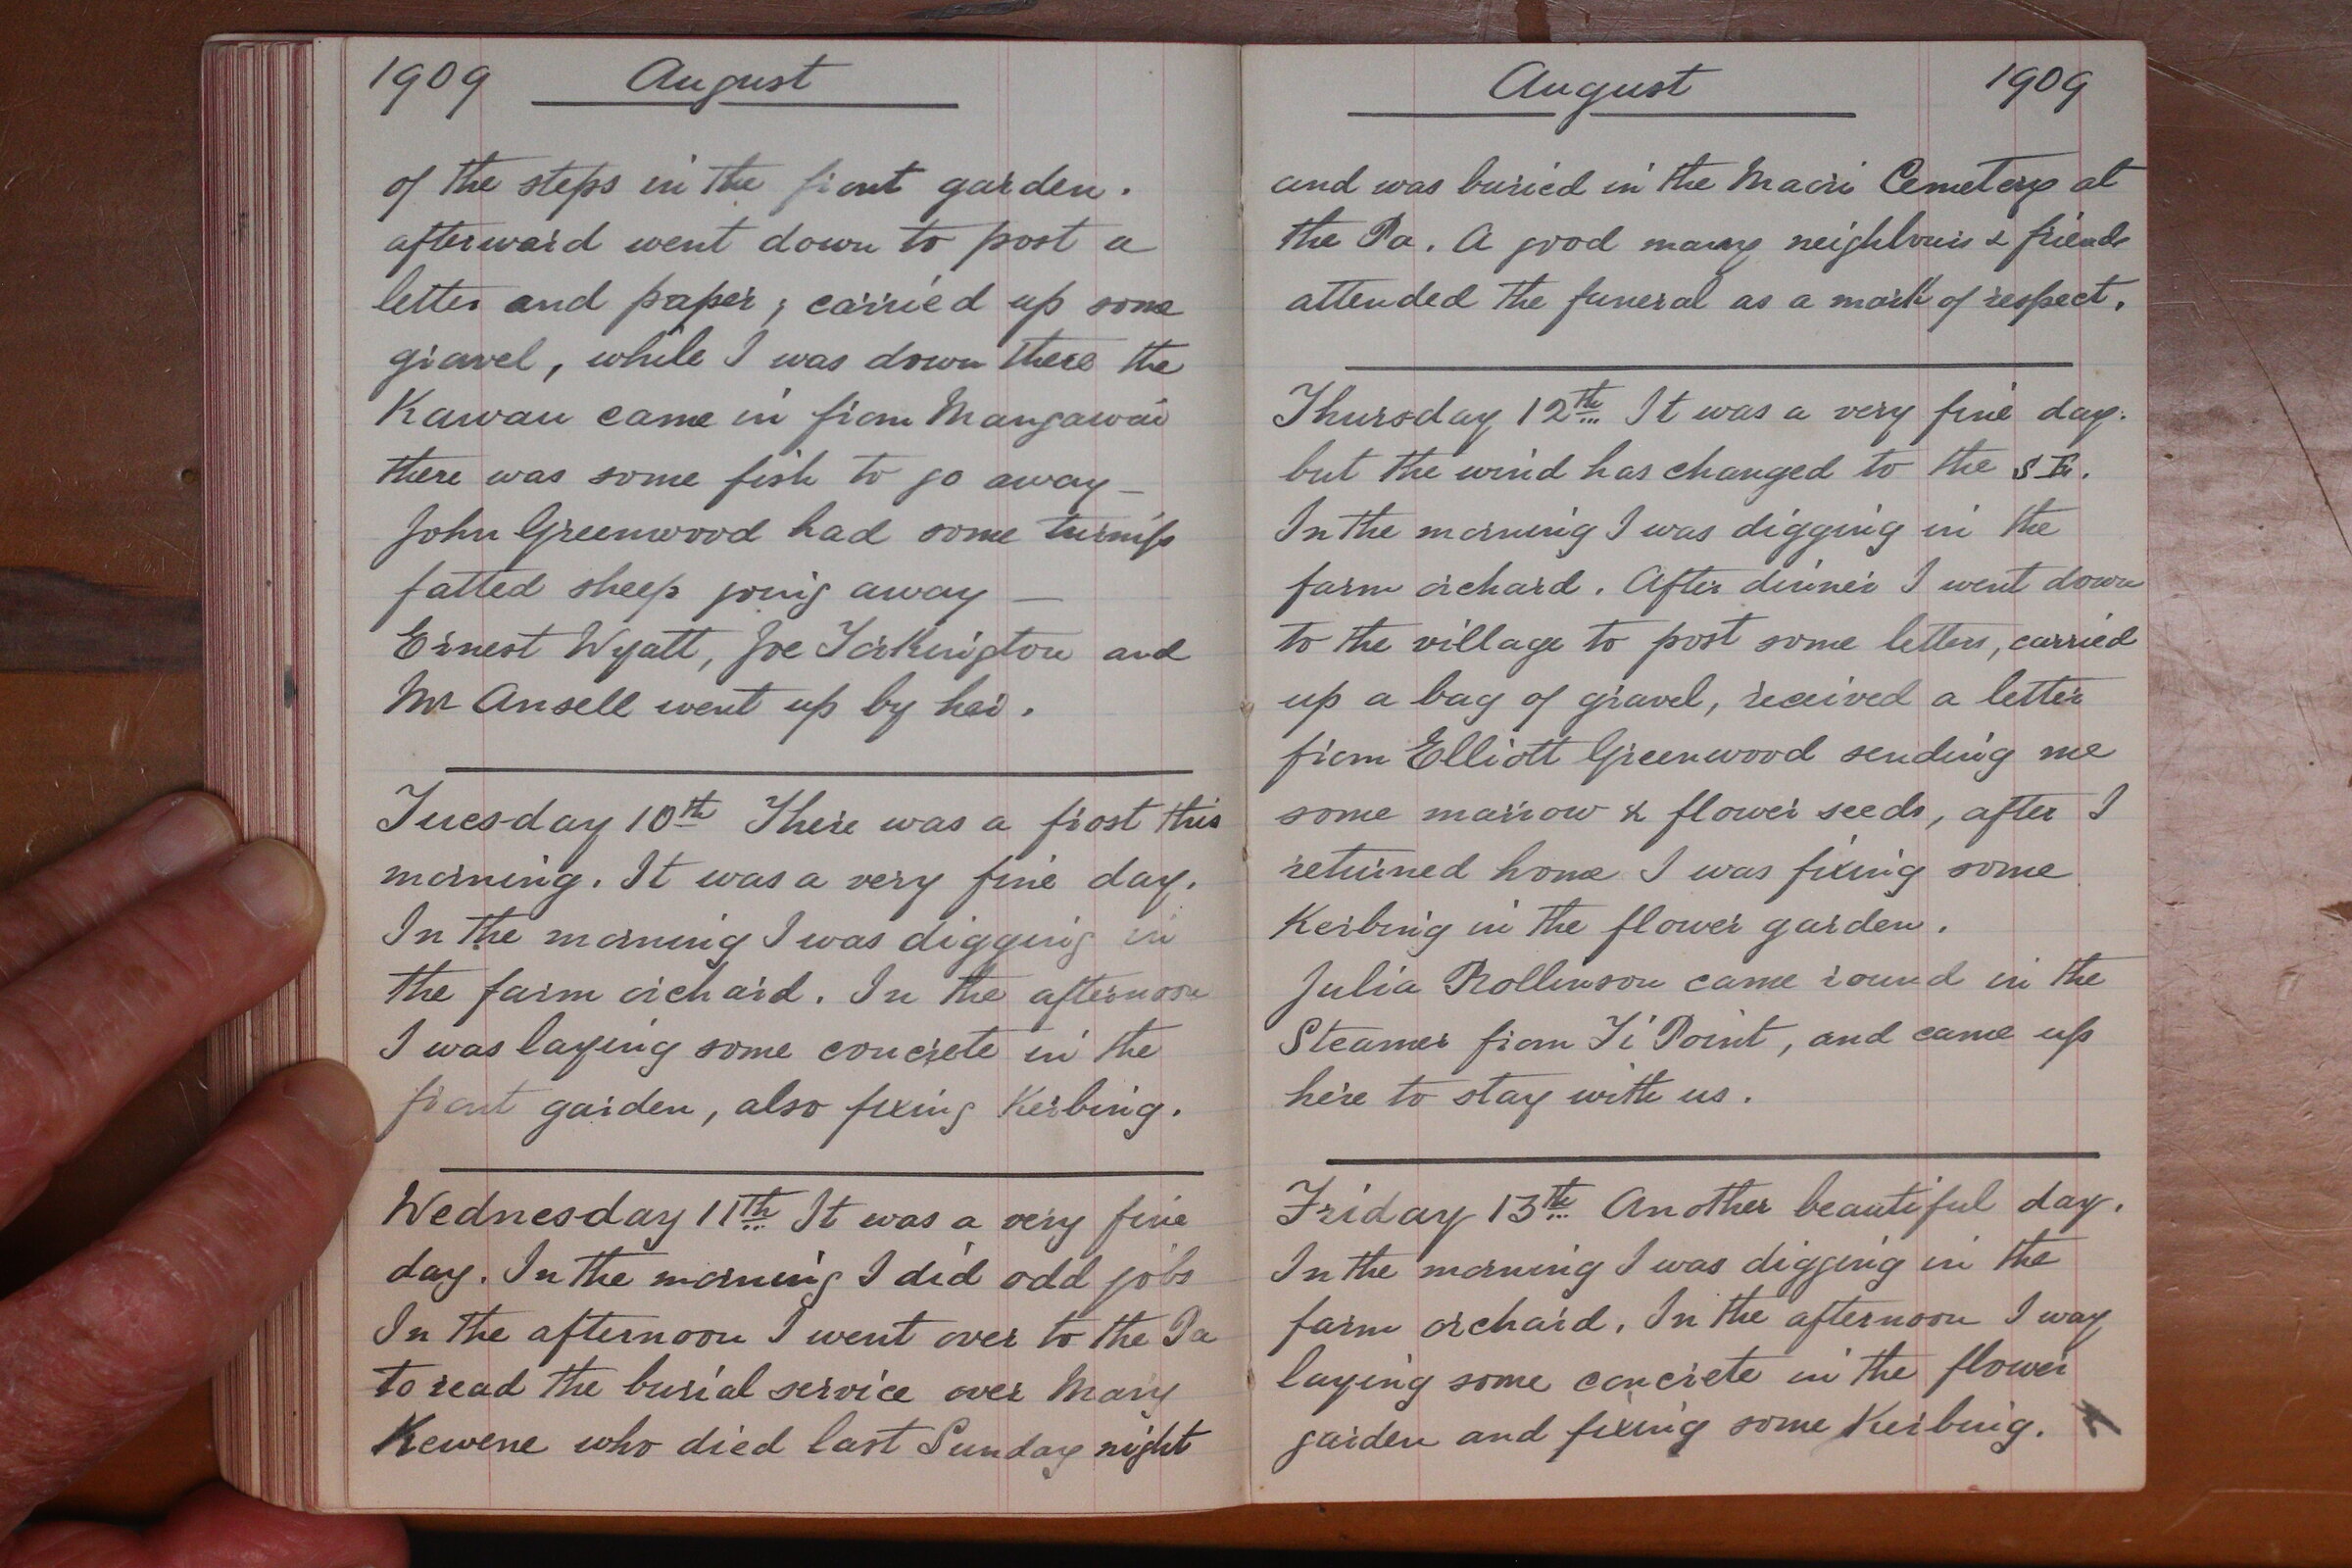 1909 August
of the steps in the front garden.
afterward went down to post a
letter and paper; carried up some
gravel, while I was down there the
Kawau came in from Mangawai
there was some fish to go away —
John Greenwood had some turnip
fatted sheep going away —
Ernest Wyatt, Joe Torkington and
Mr Ansell went up by her.
Tuesday 10th There was a frost this
morning. It was a very fine day.
In the morning I was digging in
the farm orchard. In the afternoon
I was laying some concrete in the
front garden, also fixing Kerbing.
Wednesday 11th It was a very fine
day. In the morning I did odd jobs
In the afternoon I went over to the Pa
to read the burial service over Mary
Kewene who died last Sunday night
August 1909
and was buried in the Maori Cemetery at
the Pa. A good many neighbours & friends
attended the funeral as a mark of respect.
Thursday 12th It was a very fine day.
but the wind has changed to the S E.
In the morning I was digging in the
farm orchard. After dinner I went down
to the village to post some letters, carried
up a bag of gravel, received a letter
from Elliott Greenwood sending me
some marrow & flower seeds, after I
returned home I was fixing some
Kerbing in the flower garden.
Julia Rollinson came round in the
Steamer from Ti Point, and came up
here to stay with us.
Friday 13th Another beautiful day.
In the morning I was digging in the
farm orchard. In the afternoon I was
laying some concrete in the flower
garden and fixing some Kerbing.